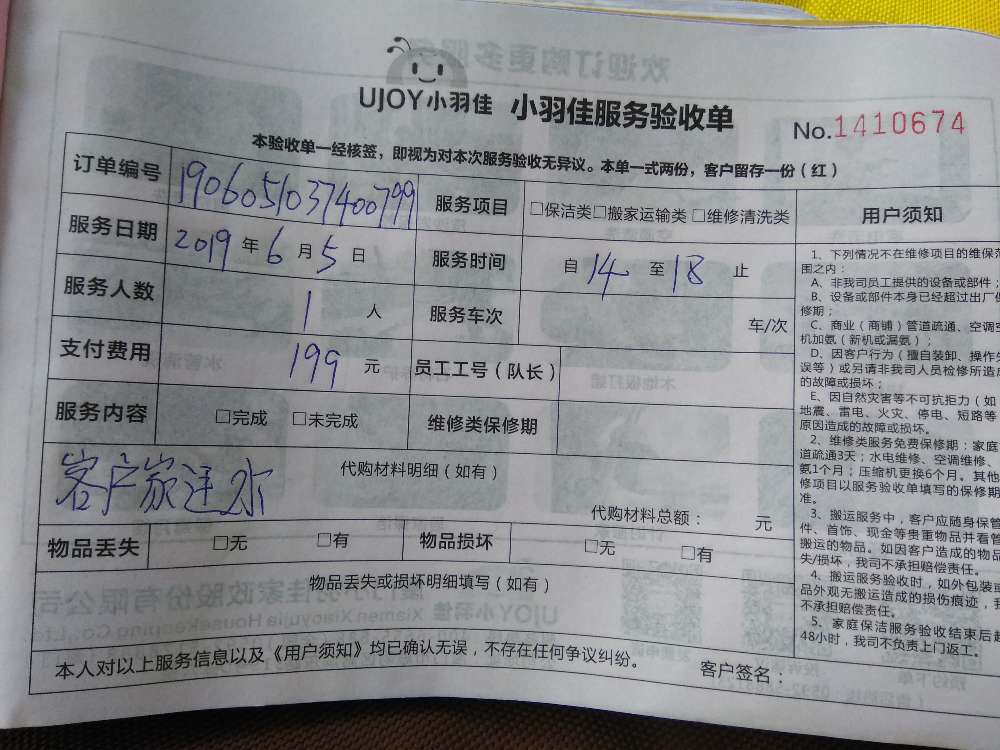 UJOY小羽佳 小羽佳服务验收单
No.1410674
本验收单一经核签，即视为对本次服务验收无异议。本单一式两份，客户留存一份（红）
订单编号 1906051037400799 服务项目 □保洁类□搬家运输类 □维修清洗类
服务日期 2019年6月5日 服务时间 自14至18止
服务人数 1人 服务车次 车/次
支付费用 199元 员工工号（队长）
服务内容 □完成 □未完成 维修类保修期
代购材料明细（如有）
客户家迁水
代购材料总额： 元
物品丢失 □无 □有 物品损坏 □无 □有
物品丢失或损坏明细填写（如有）
本人对以上服务信息以及《用户须知》均已确认无误，不存在任何争议纠纷。
客户签名：
用户须知
1、下列情况不在维修项目的维保范
围之内：
A、非我司员工提供的设备或部件；
B、设备或部件本身已经超过出厂保
修期；
C、商业（商铺）管道疏通、空调空
机加氨（新机或漏氨）；
D、因客户行为（擅自装卸、操作失
误等）或另请非我司人员检修所造成
的故障或损坏；
E、因自然灾害等不可抗拒力（如
地震、雷电、火灾、停电、短路等
原因造成的故障或损坏。
2、维修类服务免费保修期：家庭
道疏通3天；水电维修、空调维修、
氨1个月；压缩机更换6个月。其他
修项目以服务验收单填写的保修期
准。
3、搬运服务中，客户应随身保管
件、首饰、现金等贵重物品并看管
搬运的物品。如因客户造成的物品
失/损坏，我司不承担赔偿责任。
4、搬运服务验收时，如外包装或
品外观无搬运造成的损伤痕迹，我
不承担赔偿责任。
5、家庭保洁服务验收结束后超
48小时，我司不负责上门返工。